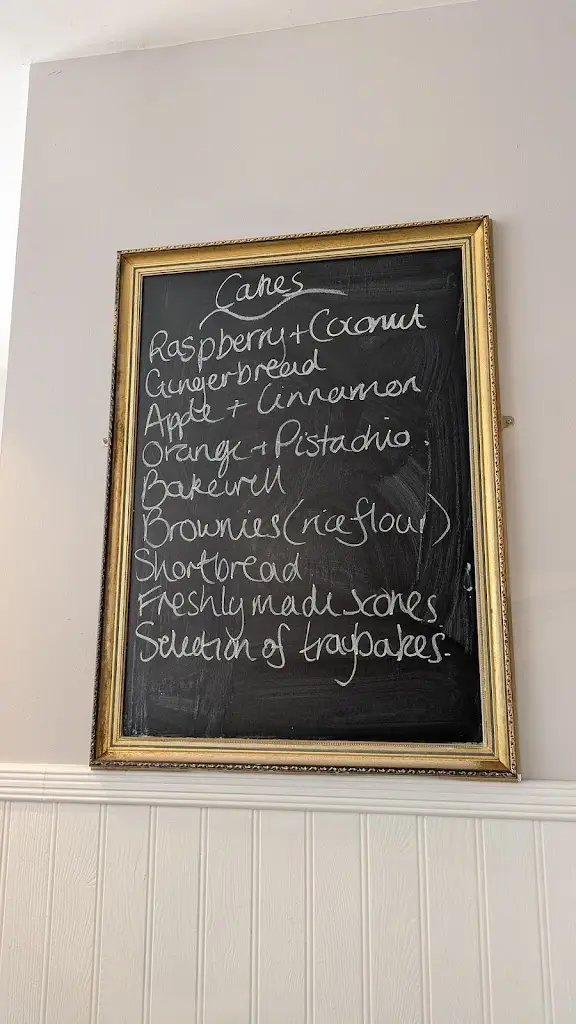 Cakes
Raspberry + Coconut
Gingerbread
Apple + Cinnamon
Orange + Pistachio.
Bakewell
Brownies (rice flour)
Shortbread
Freshly made scones
Selection of traybakes.